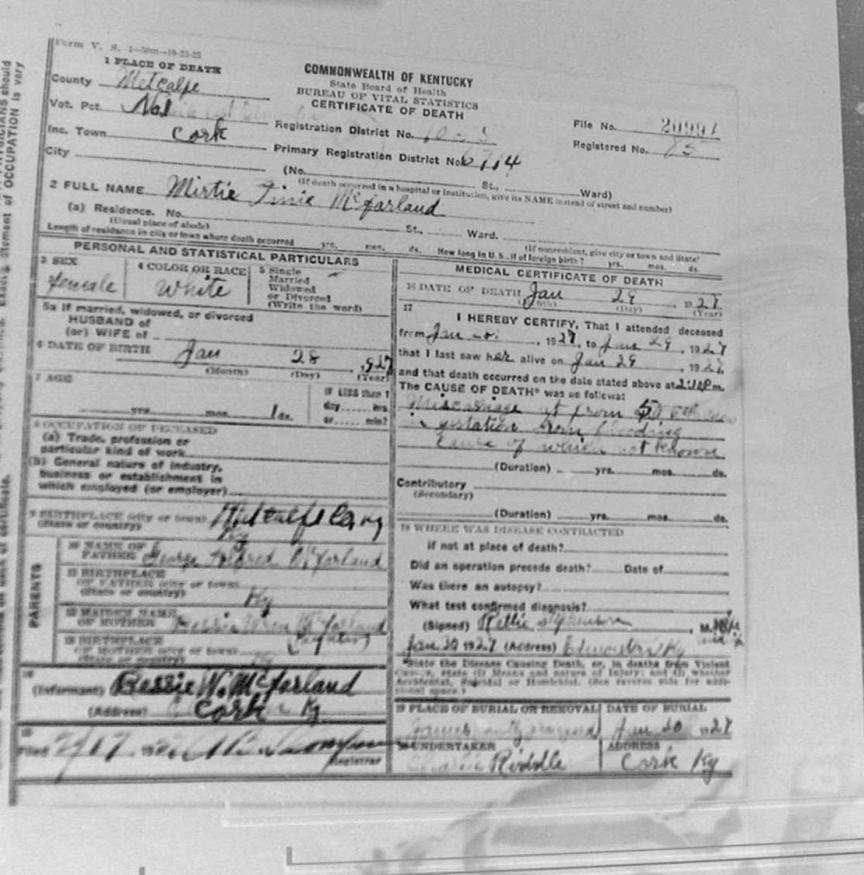 Form V. S. 1-50m-10-23-25
1 PLACE OF DEATH
COMMONWEALTH OF KENTUCKY
State Board of Health
BUREAU OF VITAL STATISTICS
CERTIFICATE OF DEATH
County Metcalfe
Vot. Pct.
Inc. Town Cork
City
Registration District No.
File No.
Primary Registration District No. 6714
Registered No. 85
(No. St., Ward)
(If death occurred in a hospital or institution, give its NAME instead of street and number)
2 FULL NAME Mirtie Tinie McFarland
(a) Residence. No. St., Ward.
(Usual place of abode) (If nonresident, give city or town and State)
Length of residence in city or town where death occurred yrs. mos. ds. How long in U. S., if of foreign birth? yrs. mos. ds.
PERSONAL AND STATISTICAL PARTICULARS
3 SEX female
4 COLOR OR RACE White
5 Single
Married
Widowed
or Divorced
(Write the word)
5a If married, widowed, or divorced
HUSBAND of
(or) WIFE of
6 DATE OF BIRTH Jan 28 1927
(Month) (Day) (Year)
7 AGE
yrs. mos. 1 ds.
IF LESS than 1
day hrs.
or min?
8 OCCUPATION OF DECEASED
(a) Trade, profession or
particular kind of work
(b) General nature of industry,
business or establishment in
which employed (or employer)
9 BIRTHPLACE (city or town) Metcalfe Co Ky
(State or country) Ky
PARENTS
10 NAME OF
FATHER George McFarland
11 BIRTHPLACE
OF FATHER (city or town)
(State or country) Ky
12 MAIDEN NAME
OF MOTHER Bessie Wren McFarland
13 BIRTHPLACE
OF MOTHER (city or town)
(State or country) Ky
14
(Informant) Bessie W. McFarland
(Address) Cork Ky
15
Filed
Registrar
MEDICAL CERTIFICATE OF DEATH
16 DATE OF DEATH Jan 29 1927
(Day) (Year)
17
I HEREBY CERTIFY, That I attended deceased
from Jan 1927, to Jan 29, 1927
that I last saw her alive on Jan 29, 1927
and that death occurred on the date stated above at m.
The CAUSE OF DEATH* was as follows:
Miscarriage at from
from bleeding
cause of which not known
(Duration) yrs. mos. ds.
Contributory
(Secondary)
(Duration) yrs. mos. ds.
18 WHERE WAS DISEASE CONTRACTED
if not at place of death?
Did an operation precede death? Date of
Was there an autopsy?
What test confirmed diagnosis?
(Signed) Stephenson
Jan 30 1927 (Address) Edmonton Ky
*State the Disease Causing Death, or, in deaths from Violent
Causes, state (1) Means and nature of Injury; and (2) whether
Accidental, Suicidal or Homicidal. (See reverse side for addi-
tional space.)
19 PLACE OF BURIAL OR REMOVAL
DATE OF BURIAL
Jan 30 1927
20 UNDERTAKER
Riddle
ADDRESS
Cork Ky